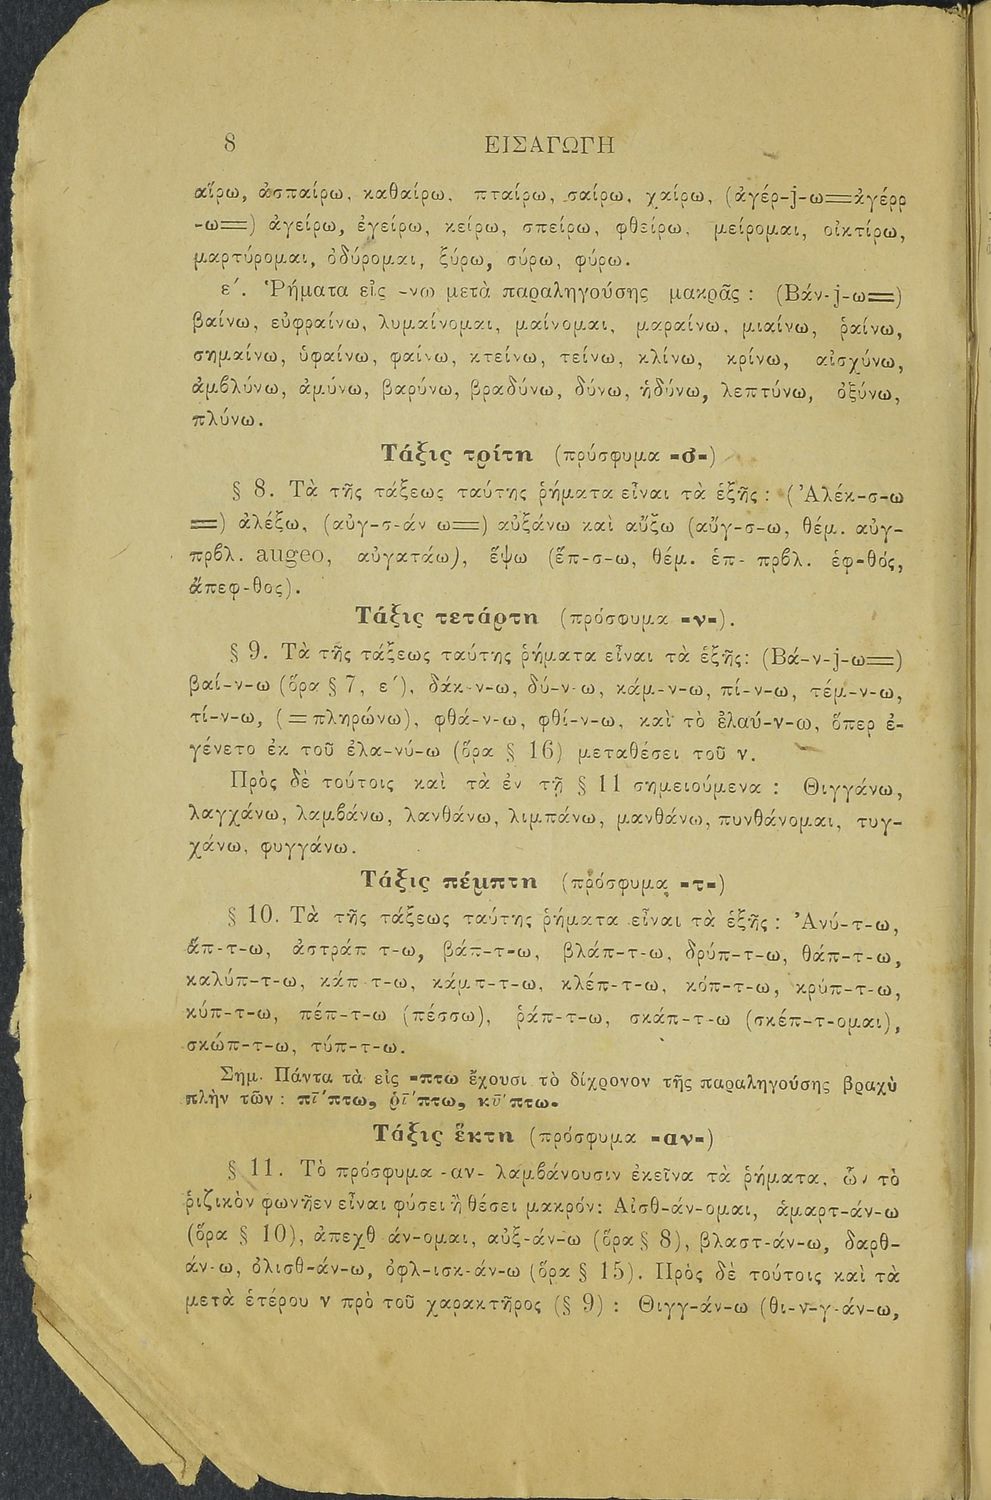 8 ΕΙΣΑΓΩΓΗ
αἴρω, ἀσπαίρω, καθαίρω, πταίρω, σαίρω, χαίρω, (ἀγέρ-j-ω=ἀγέρρ
-ω=) ἀγείρω, ἐγείρω, κείρω, σπείρω, φθείρω, μείρομαι, οἰκτίρω,
μαρτύρομαι, ὀδύρομαι, ξύρω, σύρω, φύρω.
ε΄. Ῥήματα εἰς -νω μετὰ παραληγούσης μακρᾶς : (Βάν-j-ω=)
βαίνω, εὐφραίνω, λυμαίνομαι, μαίνομαι, μαραίνω, μιαίνω, ῥαίνω,
σημαίνω, ὑφαίνω, φαίνω, κτείνω, τείνω, κλίνω, κρίνω, αἰσχύνω,
ἀμβλύνω, ἀμύνω, βαρύνω, βραδύνω, δύνω, ἡδύνω, λεπτύνω, ὀξύνω,
πλύνω.
Τάξις τρίτη (πρόσφυμα -σ-)
§ 8. Τὰ τῆς τάξεως ταύτης ῥήματα εἶναι τὰ ἑξῆς : (Ἀλέκ-σ-ω
=) ἀλέξω, (αὐγ-σ-άν ω=) αὐξάνω καὶ αὔξω (αὔγ-σ-ω, θέμ. αὐγ-
πρβλ. augeo, αὐγατάω), ἕψω (ἕπ-σ-ω, θέμ. ἑπ- πρβλ. ἑφ-θός,
ἄπεφ-θος).
Τάξις τετάρτη (πρόσφυμα -ν-).
§ 9. Τὰ τῆς τάξεως ταύτης ῥήματα εἶναι τὰ ἑξῆς: (Βά-ν-j-ω=)
βαί-ν-ω (ὅρα § 7, ε΄), δάκ-ν-ω, δύ-ν-ω, κάμ-ν-ω, πί-ν-ω, τέμ-ν-ω,
τί-ν-ω, (=πληρώνω), φθά-ν-ω, φθί-ν-ω, καὶ τὸ ἐλαύ-ν-ω, ὅπερ ἐ-
γένετο ἐκ τοῦ ἐλα-νύ-ω (ὅρα § 16) μεταθέσει τοῦ ν.
Πρὸς δὲ τούτοις καὶ τὰ ἐν τῇ § 11 σημειούμενα : Θιγγάνω,
λαγχάνω, λαμβάνω, λανθάνω, λιμπάνω, μανθάνω, πυνθάνομαι, τυγ-
χάνω, φυγγάνω.
Τάξις πέμπτη (πρόσφυμα -τ-)
§ 10. Τὰ τῆς τάξεως ταύτης ῥήματα εἶναι τὰ ἑξῆς : Ἀνύ-τ-ω,
ἅπ-τ-ω, ἀστράπ τ-ω, βάπ-τ-ω, βλάπ-τ-ω, δρύπ-τ-ω, θάπ-τ-ω,
καλύπ-τ-ω, κάπ τ-ω, κάμπ-τ-ω, κλέπ-τ-ω, κόπ-τ-ω, κρύπ-τ-ω,
κύπ-τ-ω, πέπ-τ-ω (πέσσω), ῥάπ-τ-ω, σκάπ-τ-ω (σκέπ-τ-ομαι),
σκώπ-τ-ω, τύπ-τ-ω.
Σημ. Πάντα τὰ εἰς -πτω ἔχουσι τὸ δίχρονον τῆς παραληγούσης βραχὺ
πλὴν τῶν : πῑ΄πτω, ῥῑ΄πτω, κῡ΄πτω.
Τάξις ἕκτη (πρόσφυμα -αν-)
§ 11. Τὸ πρόσφυμα -αν- λαμβάνουσιν ἐκεῖνα τὰ ῥήματα, ὧν τὸ
ῥιζικὸν φωνῆεν εἶναι φύσει ἢ θέσει μακρόν: Αἰσθ-άν-ομαι, ἁμαρτ-άν-ω
(ὅρα § 10), ἀπεχθ άν-ομαι, αὐξ-άν-ω (ὅρα § 8), βλαστ-άν-ω, δαρθ-
άν-ω, ὀλισθ-άν-ω, ὀφλ-ισκ-άν-ω (ὅρα § 15). Πρὸς δὲ τούτοις καὶ τὰ
μετὰ ἑτέρου ν πρὸ τοῦ χαρακτῆρος (§ 9) : Θιγγ-άν-ω (θι-ν-γ-άν-ω,